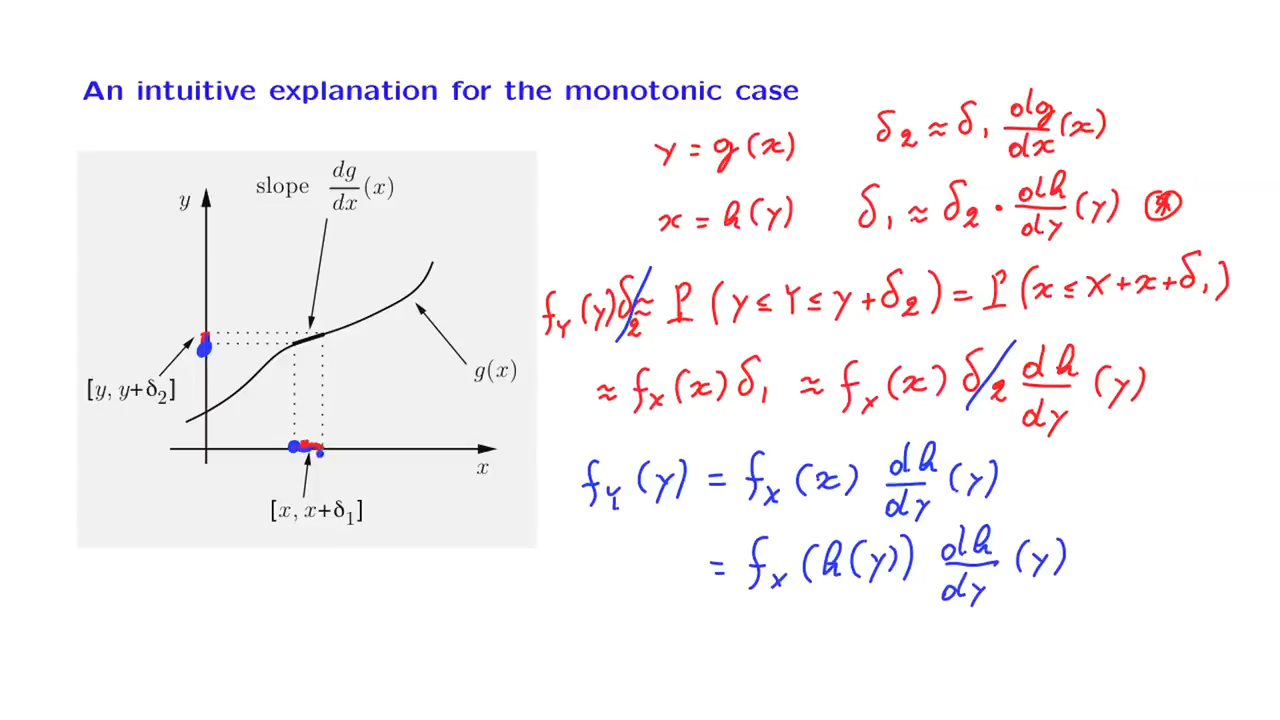 An intuitive explanation for the monotonic case
y
slope dg/dx (x)
g(x)
[y, y+δ₂]
x
[x, x+δ₁]
y = g(x)
δ₂ ≈ δ₁ dg/dx (x)
x = h(y)
δ₁ ≈ δ₂ · dh/dy (y) ⊛
f_Y(y)δ₂ ≈ P(y ≤ Y ≤ y+δ₂) = P(x ≤ X + x + δ₁)
≈ f_X(x)δ₁ ≈ f_X(x) δ₂ dh/dy (y)
f_Y(y) = f_X(x) dh/dy (y)
= f_X(h(y)) dh/dy (y)